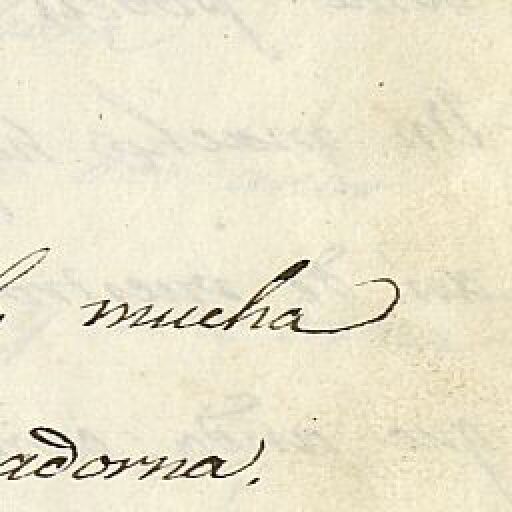 mucha
adorna.